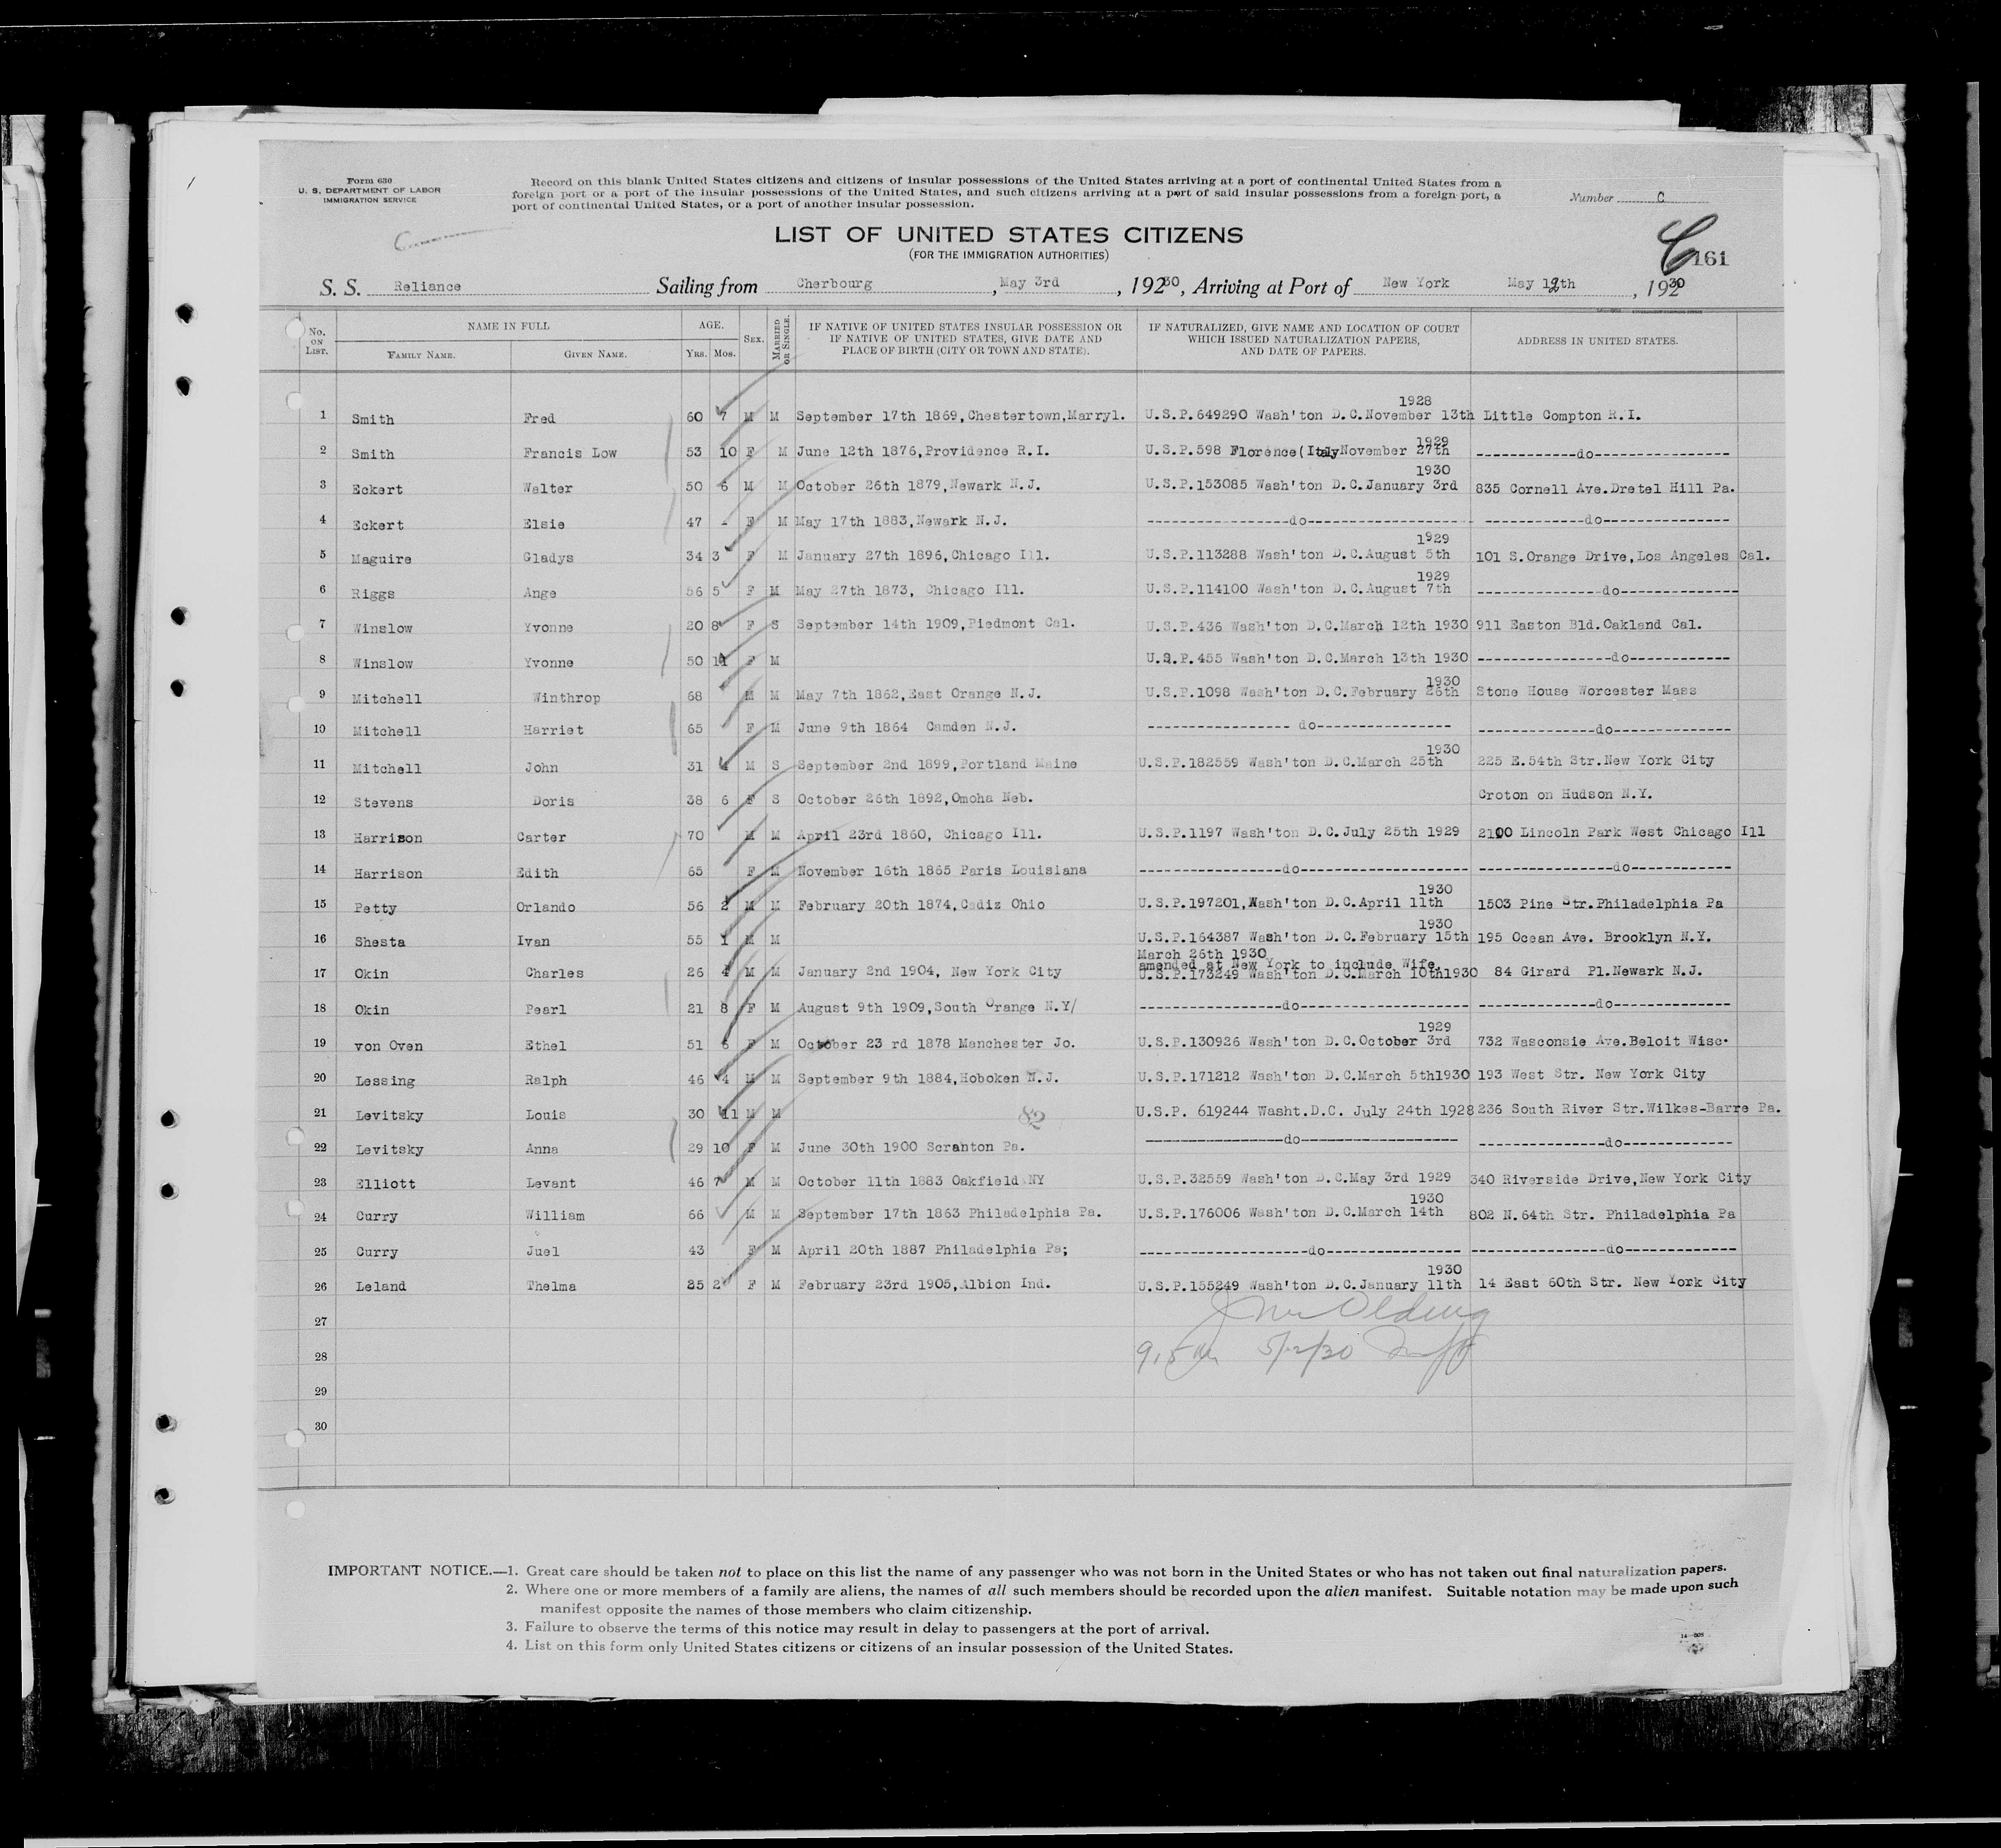 Form 630
U. S. DEPARTMENT OF LABOR
IMMIGRATION SERVICE
Record on this blank United States citizens and citizens of insular possessions of the United States arriving at a port of continental United States from a
foreign port or a port of the insular possessions of the United States, and such citizens arriving at a port of said insular possessions from a foreign port, a
port of continental United States, or a port of another insular possession.
Number C
C
LIST OF UNITED STATES CITIZENS
(FOR THE IMMIGRATION AUTHORITIES)
C 161
S. S. Reliance Sailing from Cherbourg, May 3rd, 19230, Arriving at Port of New York May 12th, 19230
No. ON LIST. NAME IN FULL AGE. SEX. MARRIED OR SINGLE. IF NATIVE OF UNITED STATES INSULAR POSSESSION OR IF NATIVE OF UNITED STATES, GIVE DATE AND PLACE OF BIRTH (CITY OR TOWN AND STATE). IF NATURALIZED, GIVE NAME AND LOCATION OF COURT WHICH ISSUED NATURALIZATION PAPERS, AND DATE OF PAPERS. ADDRESS IN UNITED STATES.
FAMILY NAME. GIVEN NAME. YRS. MOS.
1928
1 Smith Fred 60 7 M M September 17th 1869,Chestertown,Marryl. U.S.P.649290 Wash'ton D.C.November 13th Little Compton R.I.
1929
2 Smith Francis Low 53 10 F M June 12th 1876,Providence R.I. U.S.P.598 Florence(Italy November 27th ------------do----------------
1930
3 Eckert Walter 50 6 M M October 26th 1879,Newark N.J. U.S.P.153085 Wash'ton D.C.January 3rd 835 Cornell Ave.Dretel Hill Pa.
4 Eckert Elsie 47 - F M May 17th 1883,Newark N.J. -----------------do------------------- ------------do---------------
1929
5 Maguire Gladys 34 3 F M January 27th 1896,Chicago Ill. U.S.P.113288 Wash'ton D.C.August 5th 101 S.Orange Drive,Los Angeles Cal.
1929
6 Riggs Ange 56 5 F M May 27th 1873, Chicago Ill. U.S.P.114100 Wash'ton D.C.August 7th ---------------do--------------
7 Winslow Yvonne 20 8 F S September 14th 1909,Piedmont Cal. U.S.P.436 Wash'ton D.C.March 12th 1930 911 Easton Bld.Oakland Cal.
8 Winslow Yvonne 50 11 F M U.S.P.455 Wash'ton D.C.March 13th 1930 ----------------do------------
1930
9 Mitchell Winthrop 68 M M May 7th 1862,East Orange N.J. U.S.P.1098 Wash'ton D.C.February 26th Stone House Worcester Mass
10 Mitchell Harriet 65 F M June 9th 1864 Camden N.J. ----------------- do---------------- --------------do--------------
1930
11 Mitchell John 31 4 M S September 2nd 1899,Portland Maine U.S.P.182559 Wash'ton D.C.March 25th 225 E.54th Str.New York City
12 Stevens Doris 38 6 F S October 26th 1892,Omoha Neb. Croton on Hudson N.Y.
13 Harrison Carter 70 M M April 23rd 1860, Chicago Ill. U.S.P.1197 Wash'ton D.C.July 25th 1929 2100 Lincoln Park West Chicago Ill
14 Harrison Edith 65 F M November 16th 1865 Paris Louisiana -----------------do-------------------- ----------------do------------
1930
15 Petty Orlando 56 2 M M February 20th 1874,Cadiz Ohio U.S.P.197201,Wash'ton D.C.April 11th 1503 Pine Str.Philadelphia Pa
1930
16 Shesta Ivan 55 1 M M U.S.P.164387 Wash'ton D.C.February 15th 195 Ocean Ave. Brooklyn N.Y.
March 26th 1930
amended at New York to include Wife
17 Okin Charles 26 4 M M January 2nd 1904, New York City U.S.P.173249 Wash'ton D.C.March 10th1930 84 Girard Pl.Newark N.J.
18 Okin Pearl 21 8 F M August 9th 1909,South Orange N.Y/ -----------------do-------------------- --------------do--------------
1929
19 von Oven Ethel 51 6 F M October 23 rd 1878 Manchester Jo. U.S.P.130926 Wash'ton D.C.October 3rd 732 Wasconsie Ave.Beloit Wisc.
20 Lessing Ralph 46 4 M M September 9th 1884,Hoboken N.J. U.S.P.171212 Wash'ton D.C.March 5th1930 193 West Str. New York City
21 Levitsky Louis 30 11 M M 82 U.S.P. 619244 Washt.D.C. July 24th 1928 236 South River Str.Wilkes-Barre Pa.
22 Levitsky Anna 29 10 F M June 30th 1900 Scranton Pa. -----------------do------------------- ---------------do-------------
23 Elliott Levant 46 7 M M October 11th 1883 Oakfield NY U.S.P.32559 Wash'ton D.C.May 3rd 1929 340 Riverside Drive,New York City
1930
24 Curry William 66 M M September 17th 1863 Philadelphia Pa. U.S.P.176006 Wash'ton D.C.March 14th 802 N.64th Str. Philadelphia Pa
25 Curry Juel 43 F M April 20th 1887 Philadelphia Pa; --------------------do---------------- ----------------do-------------
1930
26 Leland Thelma 25 2 F M February 23rd 1905,Albion Ind. U.S.P.155249 Wash'ton D.C.January 11th 14 East 60th Str. New York City
27
28
29
30
IMPORTANT NOTICE.—1. Great care should be taken not to place on this list the name of any passenger who was not born in the United States or who has not taken out final naturalization papers.
2. Where one or more members of a family are aliens, the names of all such members should be recorded upon the alien manifest. Suitable notation may be made upon such
manifest opposite the names of those members who claim citizenship.
3. Failure to observe the terms of this notice may result in delay to passengers at the port of arrival.
4. List on this form only United States citizens or citizens of an insular possession of the United States.